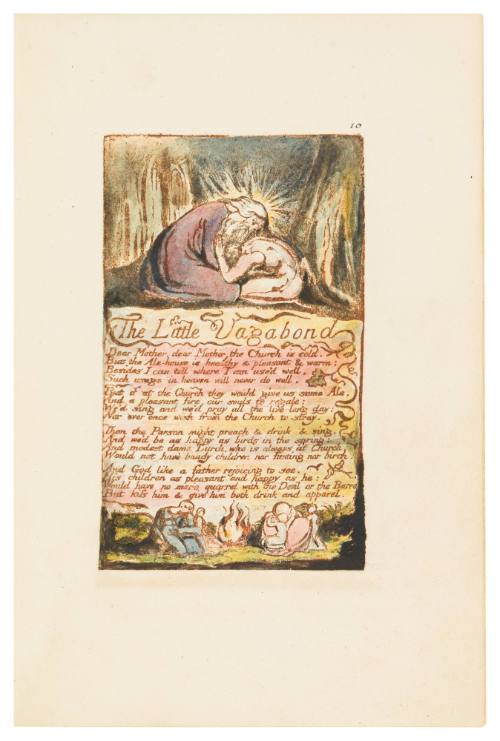 10
The Little Vagabond
Dear Mother, dear Mother, the Church is cold.
But the Ale-house is healthy & pleasant & warm;
Besides I can tell where I am use'd well.
Such usage in heaven will never do well.
But if at the Church they would give us some Ale.
And a pleasant fire, our souls to regale:
We'd sing and we'd pray all the live long day:
Nor ever once wish from the Church to stray.
Then the Parson might preach & drink & sing.
And we'd be as happy as birds in the spring:
And modest dame Lurch, who is always at Church
Would not have bandy children nor fasting nor birch
And God like a father rejoicing to see.
His children as pleasant and happy as he:
Would have no more quarrel with the Devil or the Barrel
But kiss him & give him both drink and apparel.